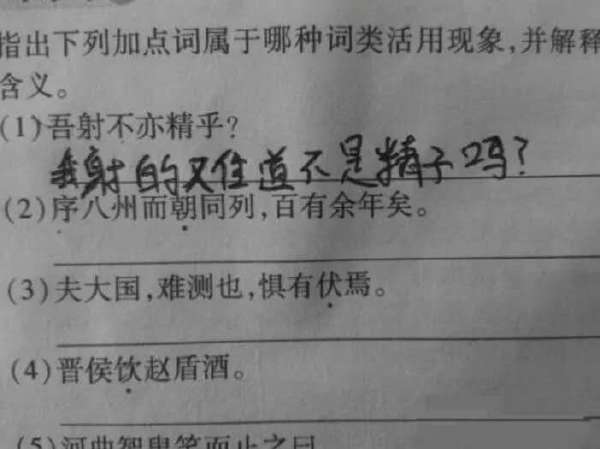 指出下列加点词属于哪种词类活用现象,并解释
含义。
(1)吾射不亦精乎?
我射的又住道不是精子吗?
(2)序八州而朝同列,百有余年矣。
(3)夫大国,难测也,惧有伏焉。
(4)晋侯饮赵盾酒。
(5)河曲智叟笑而止之曰